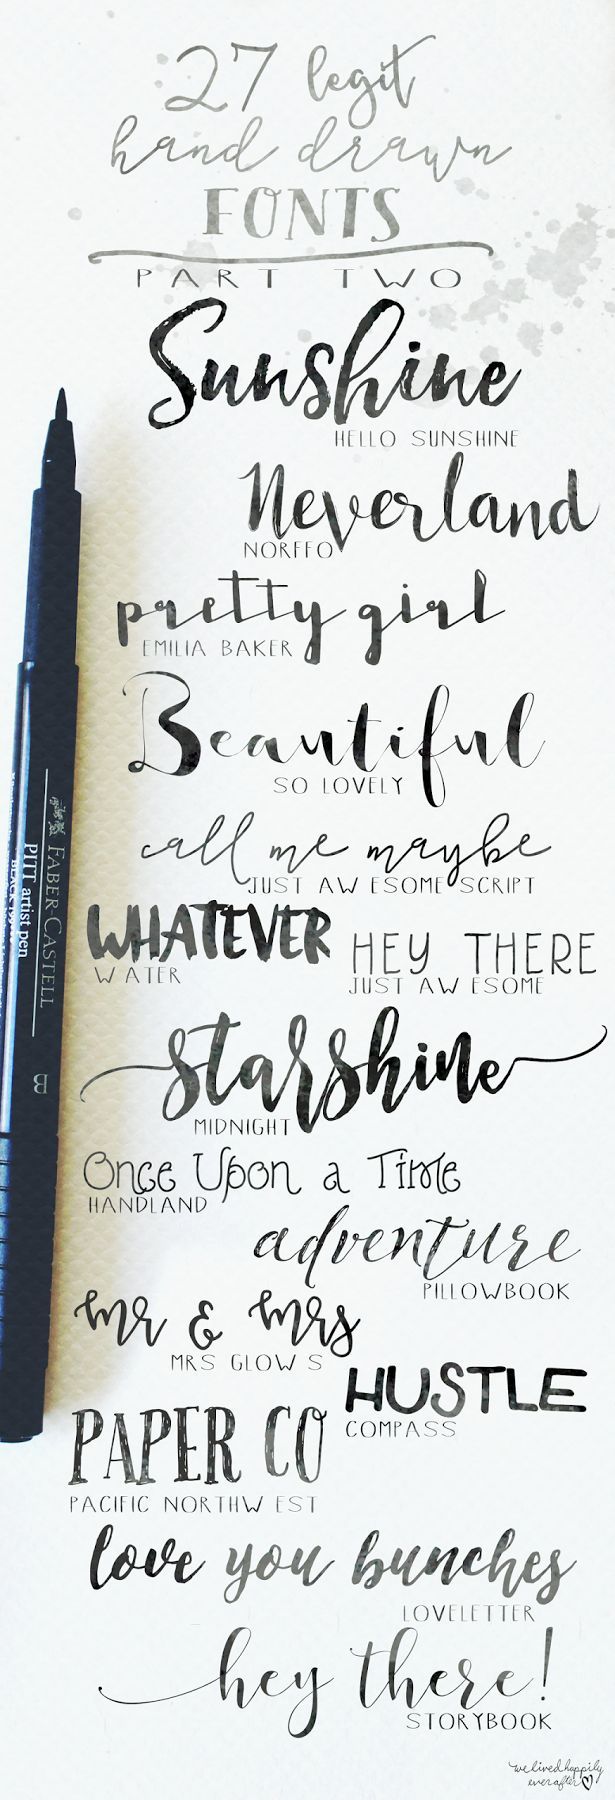 27 legit
hand drawn
FONTS
PART TWO
Sunshine
HELLO SUNSHINE
Neverland
NORFFO
pretty girl
EMILIA BAKER
Beautiful
SO LOVELY
call me maybe
JUST AW ESOME SCRIPT
WHATEVER
W ATER
HEY THERE
JUST AW ESOME
starshine
MIDNIGHT
Once Upon a Time
HANDLAND
adventure
PILLOWBOOK
mr & mrs
MRS GLOW S
HUSTLE
COMPASS
PAPER CO
PACIFIC NORTHW EST
love you bunches
LOVELETTER
hey there!
STORYBOOK
we lived happily
ever after
FABER-CASTELL
PITT artist pen
B